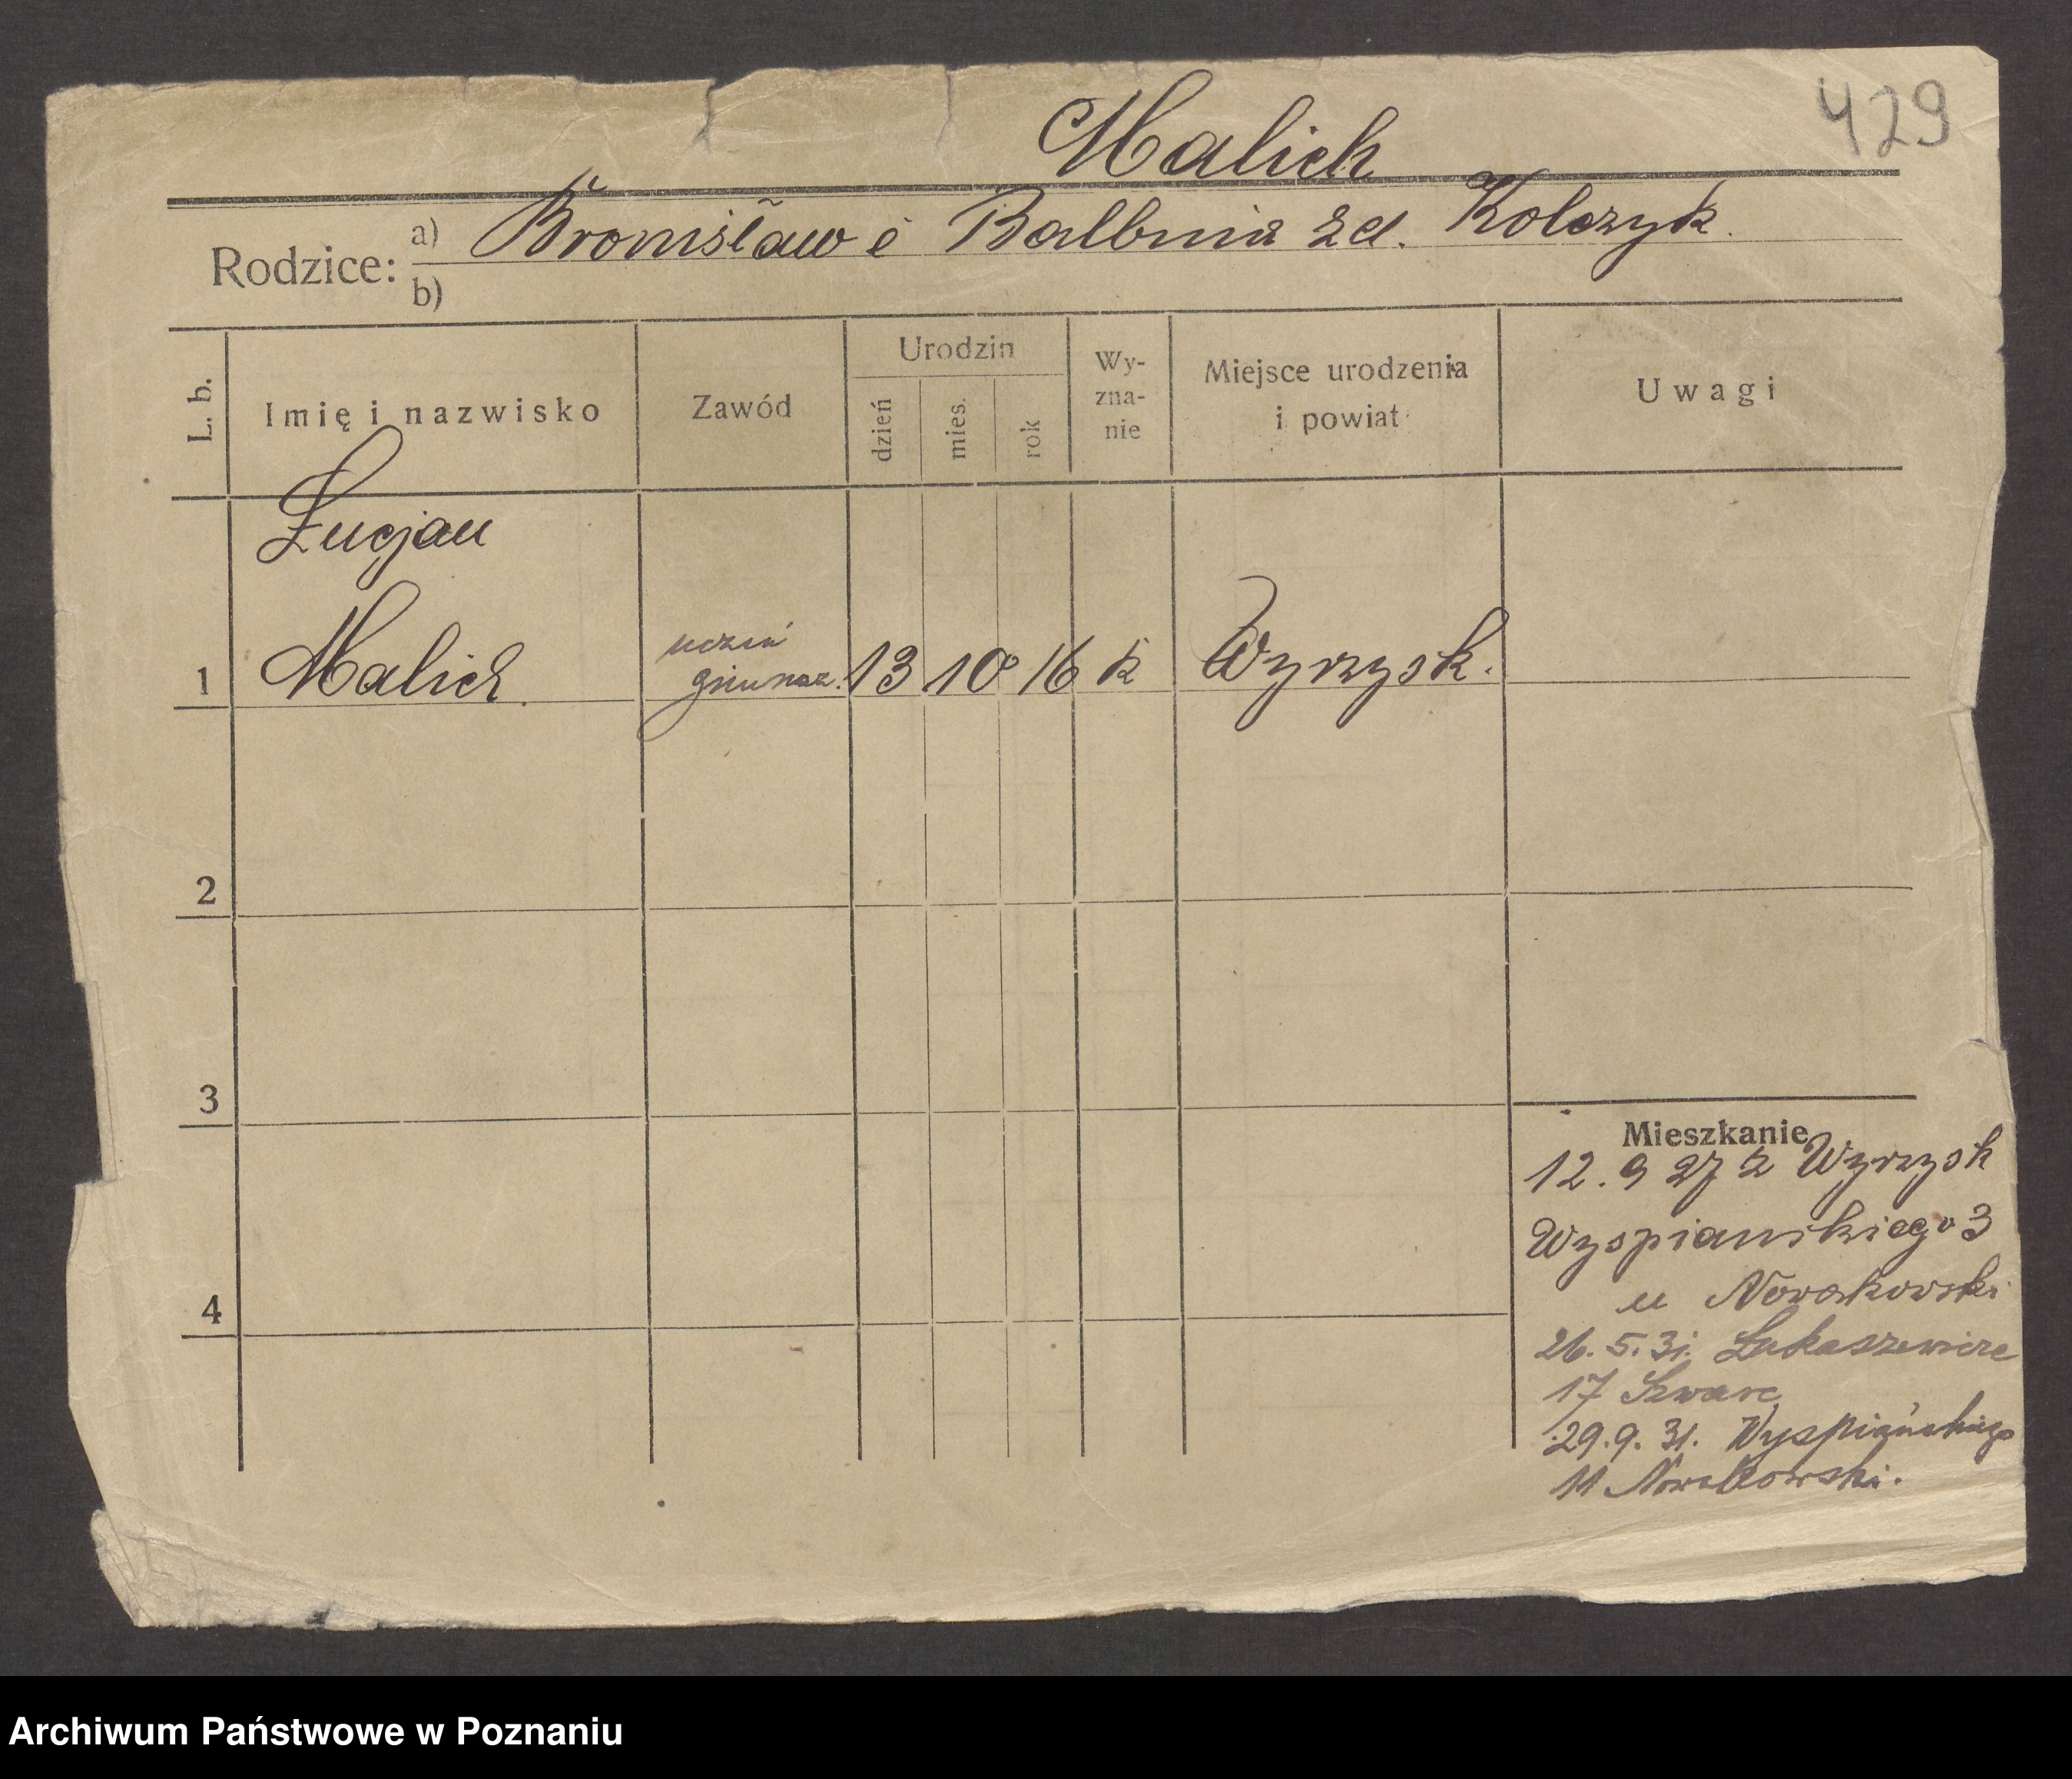 429
Malich
Rodzice:
a) Bronisław i Balbina zd. Kolczyk.
b)
L. b.
Imię i nazwisko
Zawód
Urodzin
dzień
mies.
rok
Wy-
zna-
nie
Miejsce urodzenia
i powiat
Uwagi
Łucjan
1 Malich uczeń gimnaz. 13 10 16 k Wyrzysk.
2
3
4
Mieszkanie
12. 9 27 z Wyrzysk
Wyspianskiego 3
u Nowakowski
26. 5. 31. Łukaszewicza
17 Szwarc
29. 9. 31. Wyspiańskiego
11 Nowakowski.
Archiwum Państwowe w Poznaniu